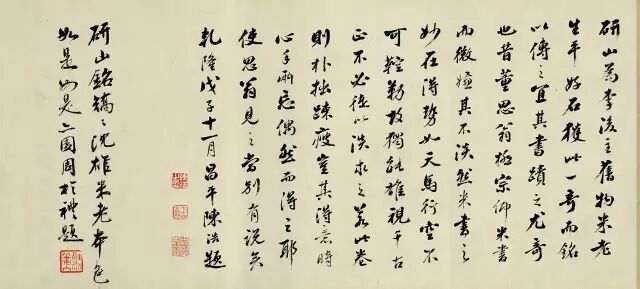 研山為李後主舊物米老
生平好石獲此一奇而銘
以傳之宜其書蹟之尤奇
也昔董思翁極宗仰米書
而微嫌其不淡然米書之
妙在得勢如天馬行空不
可鞚勒故獨能雄視千古
正不必徒以淡求之若此卷
則朴拙疎瘦豈其得意時
心手兩忘偶然而得之耶
使思翁見之當別有說矣
乾隆戊子十一月昌平陳浩題
研山銘矯之沈雄米老本色
如是如是六圃周於禮題